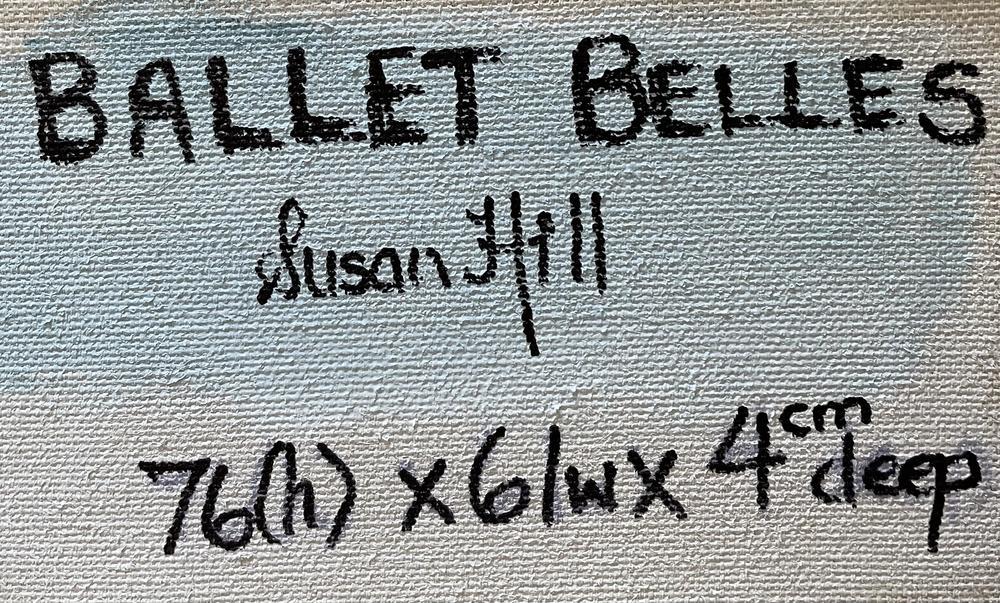 BALLET BELLES
Susan Hill
76(h) x 61w x 4cm deep